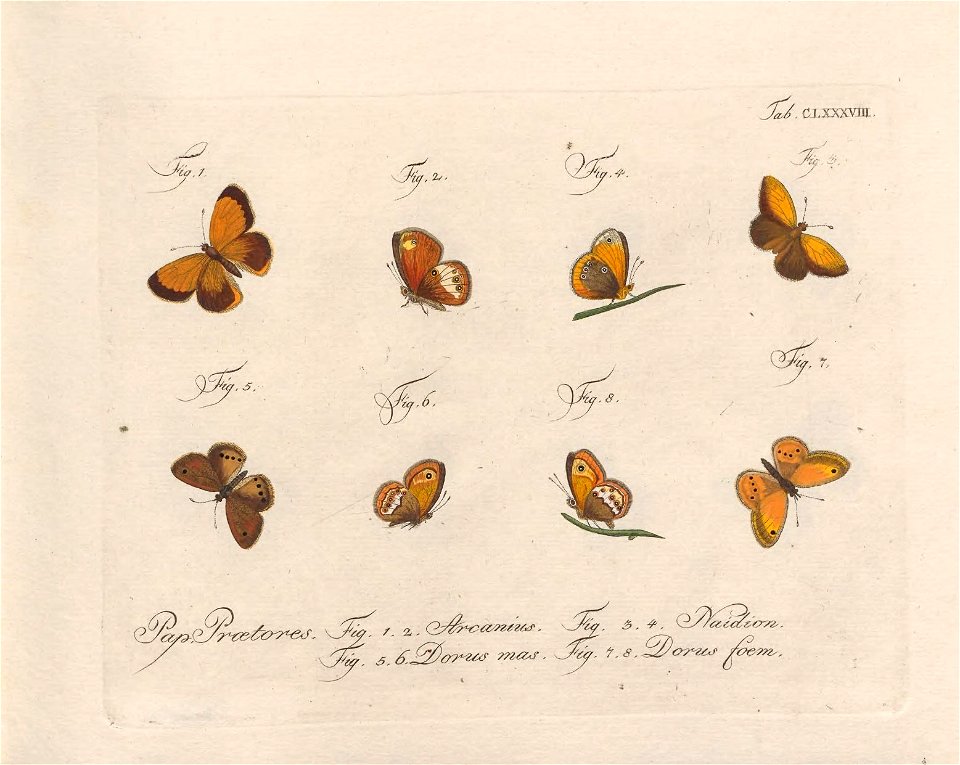 Tab. CLXXXVIII.
Fig. 1.
Fig. 2.
Fig. 4.
Fig. 3.
Fig. 5.
Fig. 6.
Fig. 8.
Fig. 7.
Pap. Prætores. Fig. 1. 2. Arcanius. Fig. 3. 4. Naidion.
Fig. 5. 6. Dorus mas. Fig. 7. 8. Dorus foem.